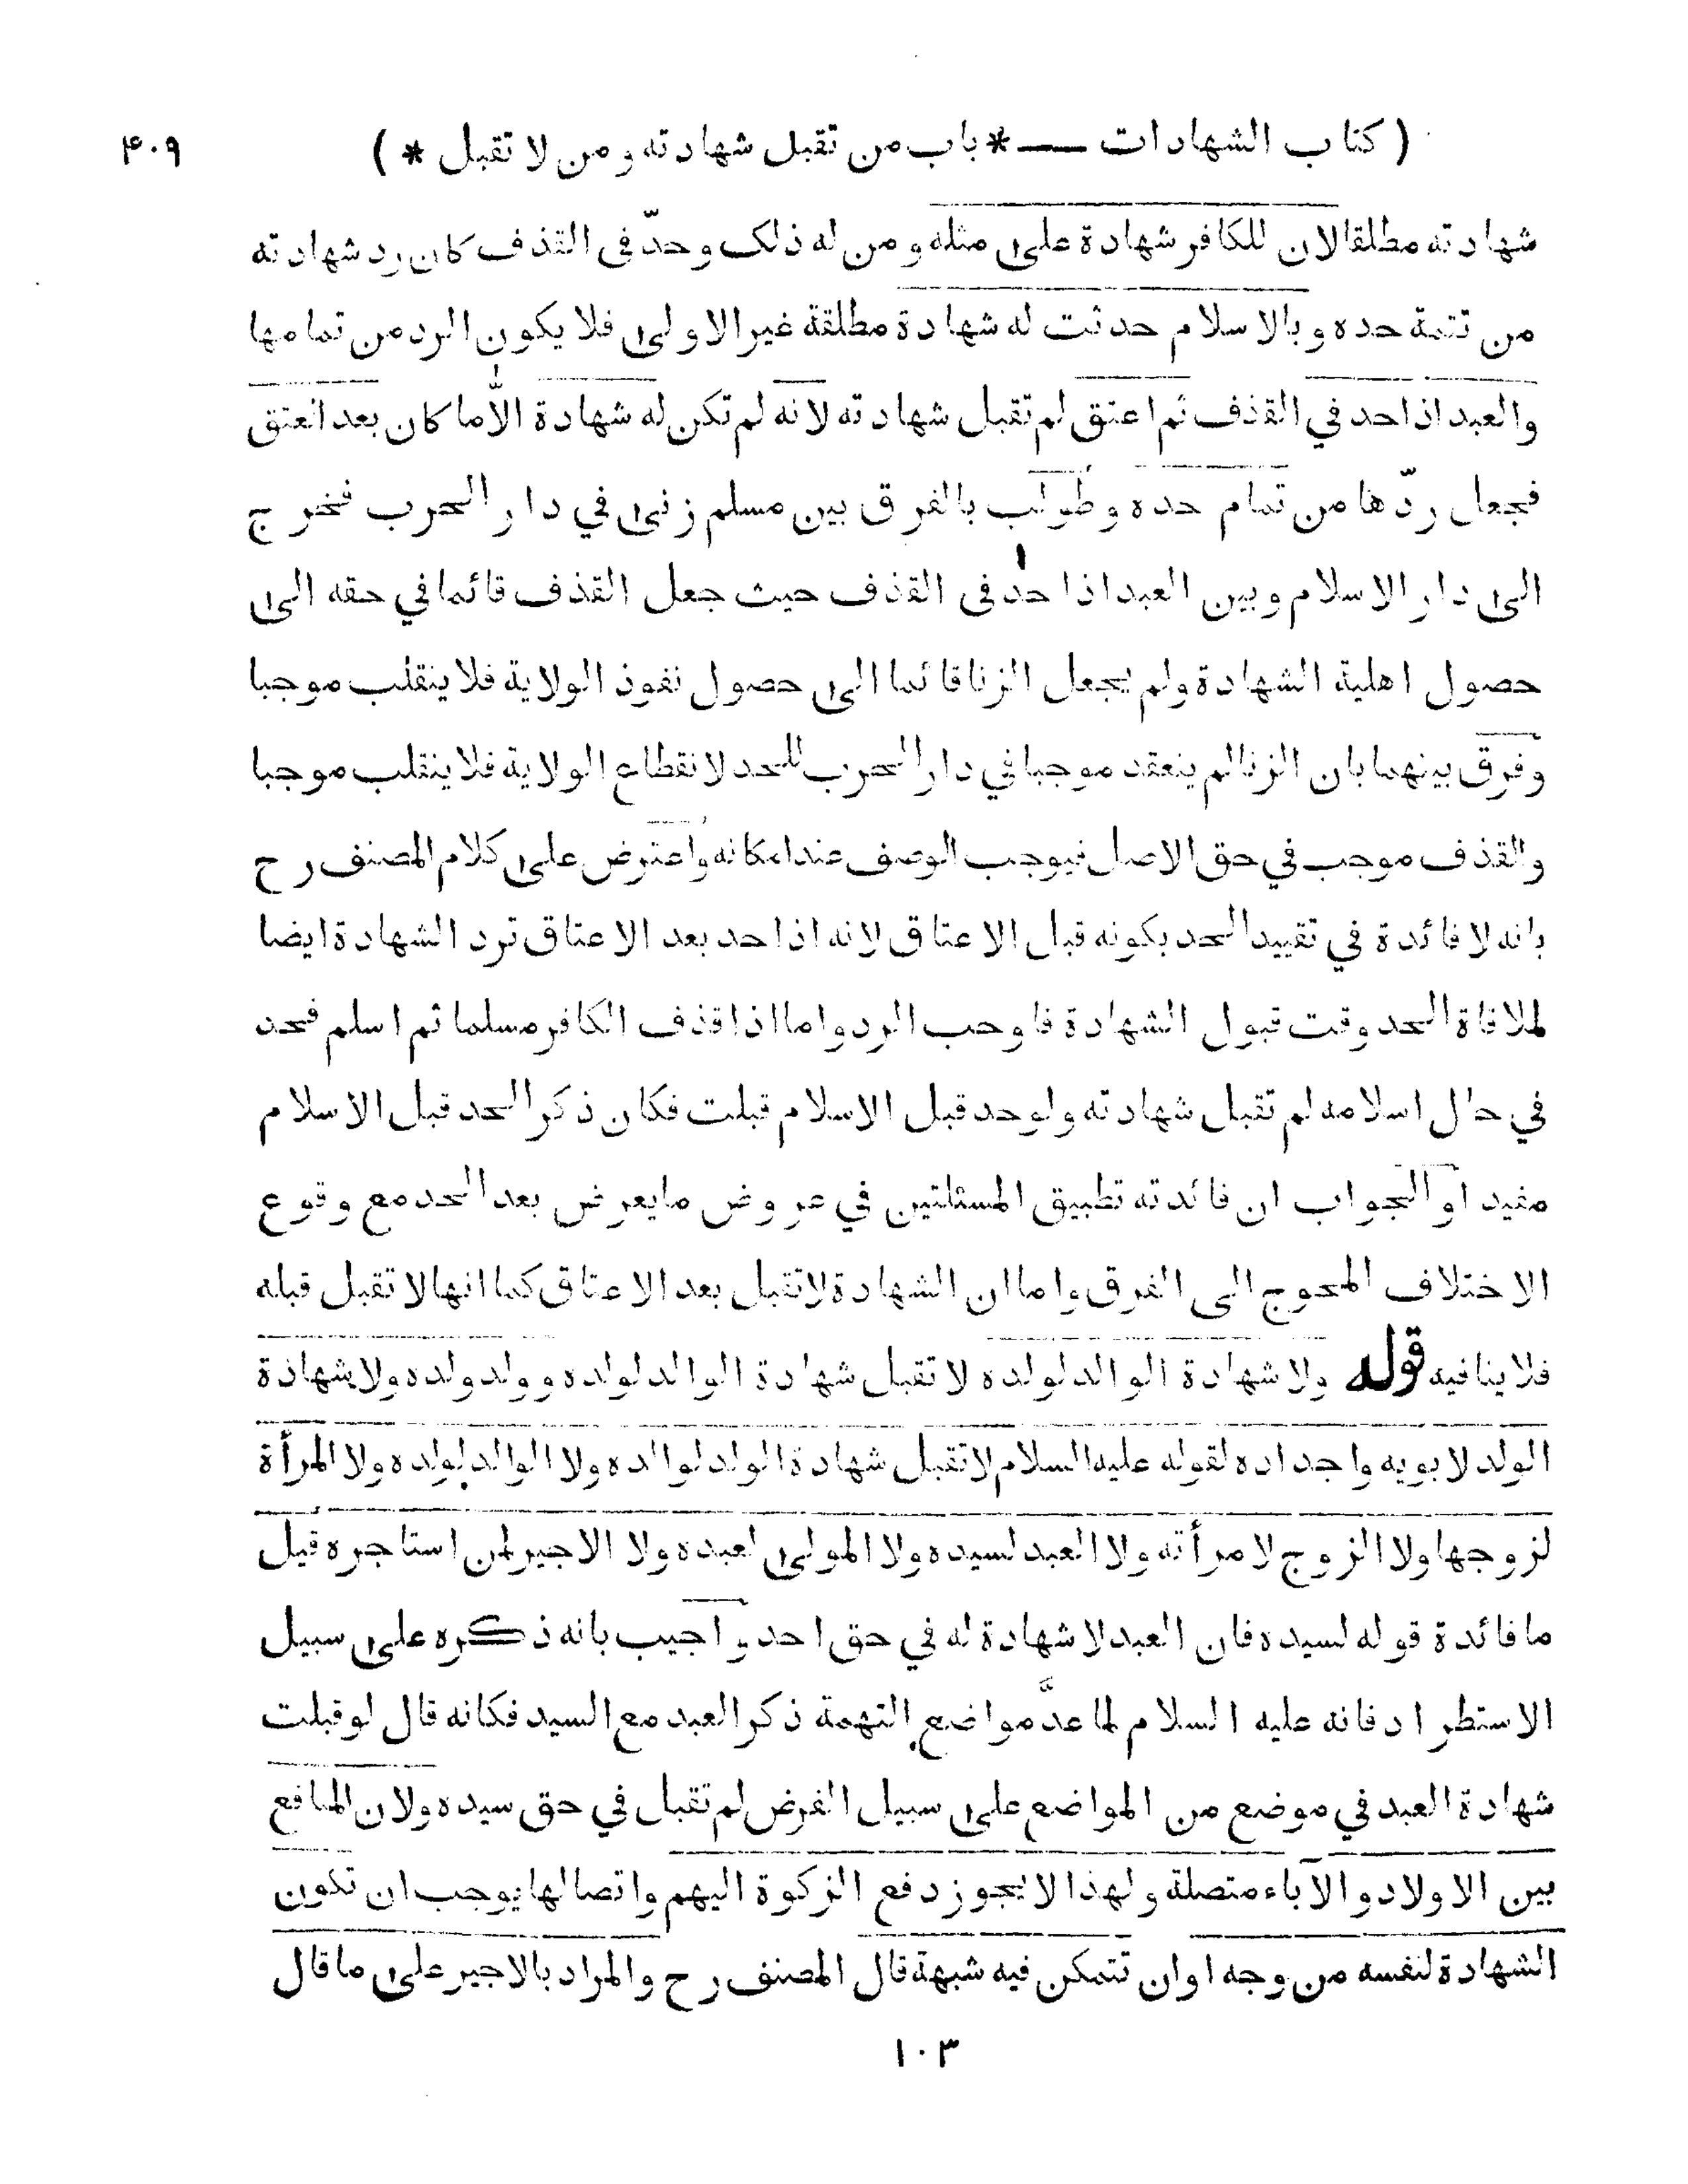 ( كتاب الشهادات — * باب من تقبل شهادته ومن لا تقبل * ) ٣٠٩
شهادته مطلقا لان للكافر شهادة على مثله ومن له ذلك وحدّ في القذف كان رد شهادته
من تتمة حده وبالاسلام حدثت له شهادة مطلقة غير الاولى فلا يكون الرد من تمامها
والعبد اذا حد في القذف ثم اعتق لم تقبل شهادته لانه لم تكن له شهادة الّا ما كان بعد العتق
فجعل ردّها من تمام حده وطولب بالفرق بين مسلم زنى في دار الحرب فخرج
الى دار الاسلام وبين العبد اذا حد في القذف حيث جعل القذف قائما في حقه الى
حصول اهلية الشهادة ولم يجعل الزنا قائما الى حصول نفوذ الولاية فلا ينقلب موجبا
وفرق بينهما بان الزنا لم ينعقد موجبا في دار الحرب للحد لانقطاع الولاية فلا ينقلب موجبا
والقذف موجب في حق الاصل فيوجب الوصف عند امكانه واعترض على كلام المصنف رح
بانه لا فائدة في تقييد الحد بكونه قبل الاعتاق لانه اذا حد بعد الاعتاق ترد الشهادة ايضا
لملاقاة الحد وقت قبول الشهادة فاوجب الرد واما اذا قذف الكافر مسلما ثم اسلم فحد
في حال اسلامه لم تقبل شهادته ولو حد قبل الاسلام قبلت فكان ذكر الحد قبل الاسلام
مفيدا والجواب ان فائدته تطبيق المسئلتين في عروض ما يعرض بعد الحد مع وقوع
الاختلاف المحوج الى الفرق واما ان الشهادة لا تقبل بعد الاعتاق كما انها لا تقبل قبله
فلا ينافيه قوله ولا شهادة الوالد لولده لا تقبل شهادة الوالد لولده وولد ولده ولا شهادة
الولد لابويه واجداده لقوله عليه السلام لا تقبل شهادة الولد لوالده ولا الوالد لولده ولا المرأة
لزوجها ولا الزوج لامرأته ولا العبد لسيده ولا المولى لعبده ولا الاجير لمن استاجره قيل
ما فائدة قوله لسيده فان العبد لا شهادة له في حق احد واجيب بانه ذكره على سبيل
الاستطراد فانه عليه السلام لما عدّ مواضع التهمة ذكر العبد مع السيد فكانه قال لو قبلت
شهادة العبد في موضع من المواضع على سبيل الفرض لم تقبل في حق سيده ولان المنافع
بين الاولاد والآباء متصلة ولهذا لا يجوز دفع الزكوة اليهم واتصالها يوجب ان تكون
الشهادة لنفسه من وجه او ان تتمكن فيه شبهة قال المصنف رح والمراد بالاجير على ما قال
١٠٣